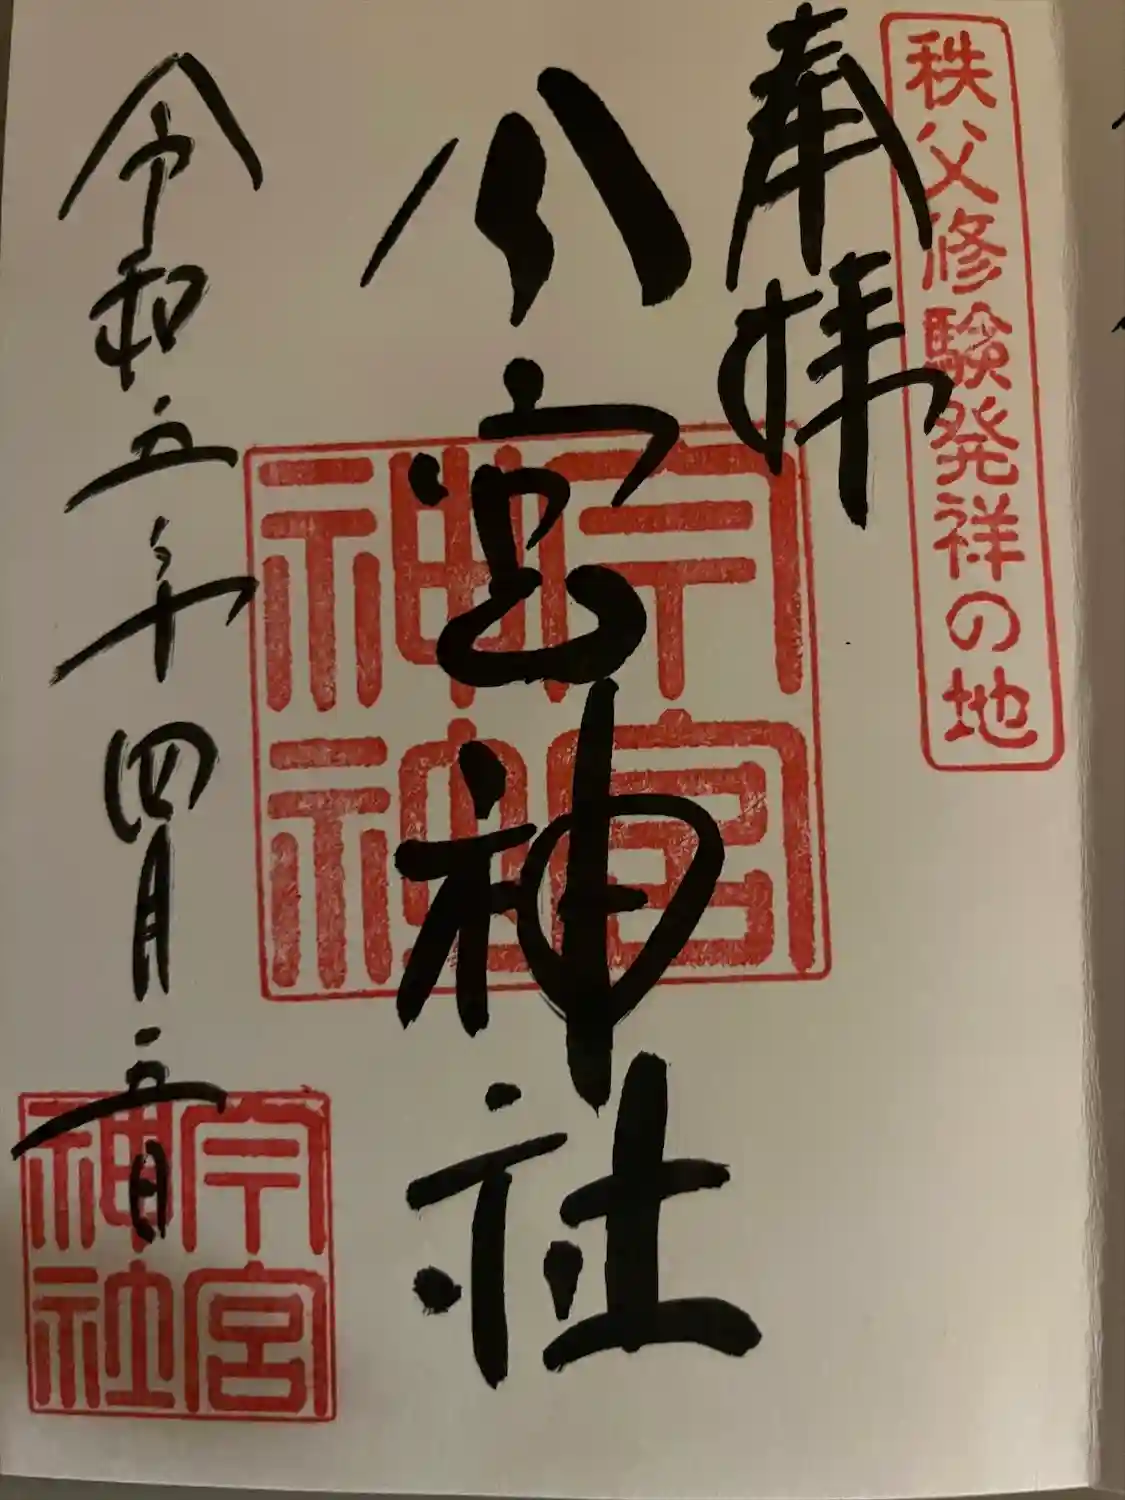 秩父修験発祥の地
奉拝
今宮神社
今宮
神神
今宮
神社
令和五年四月五日